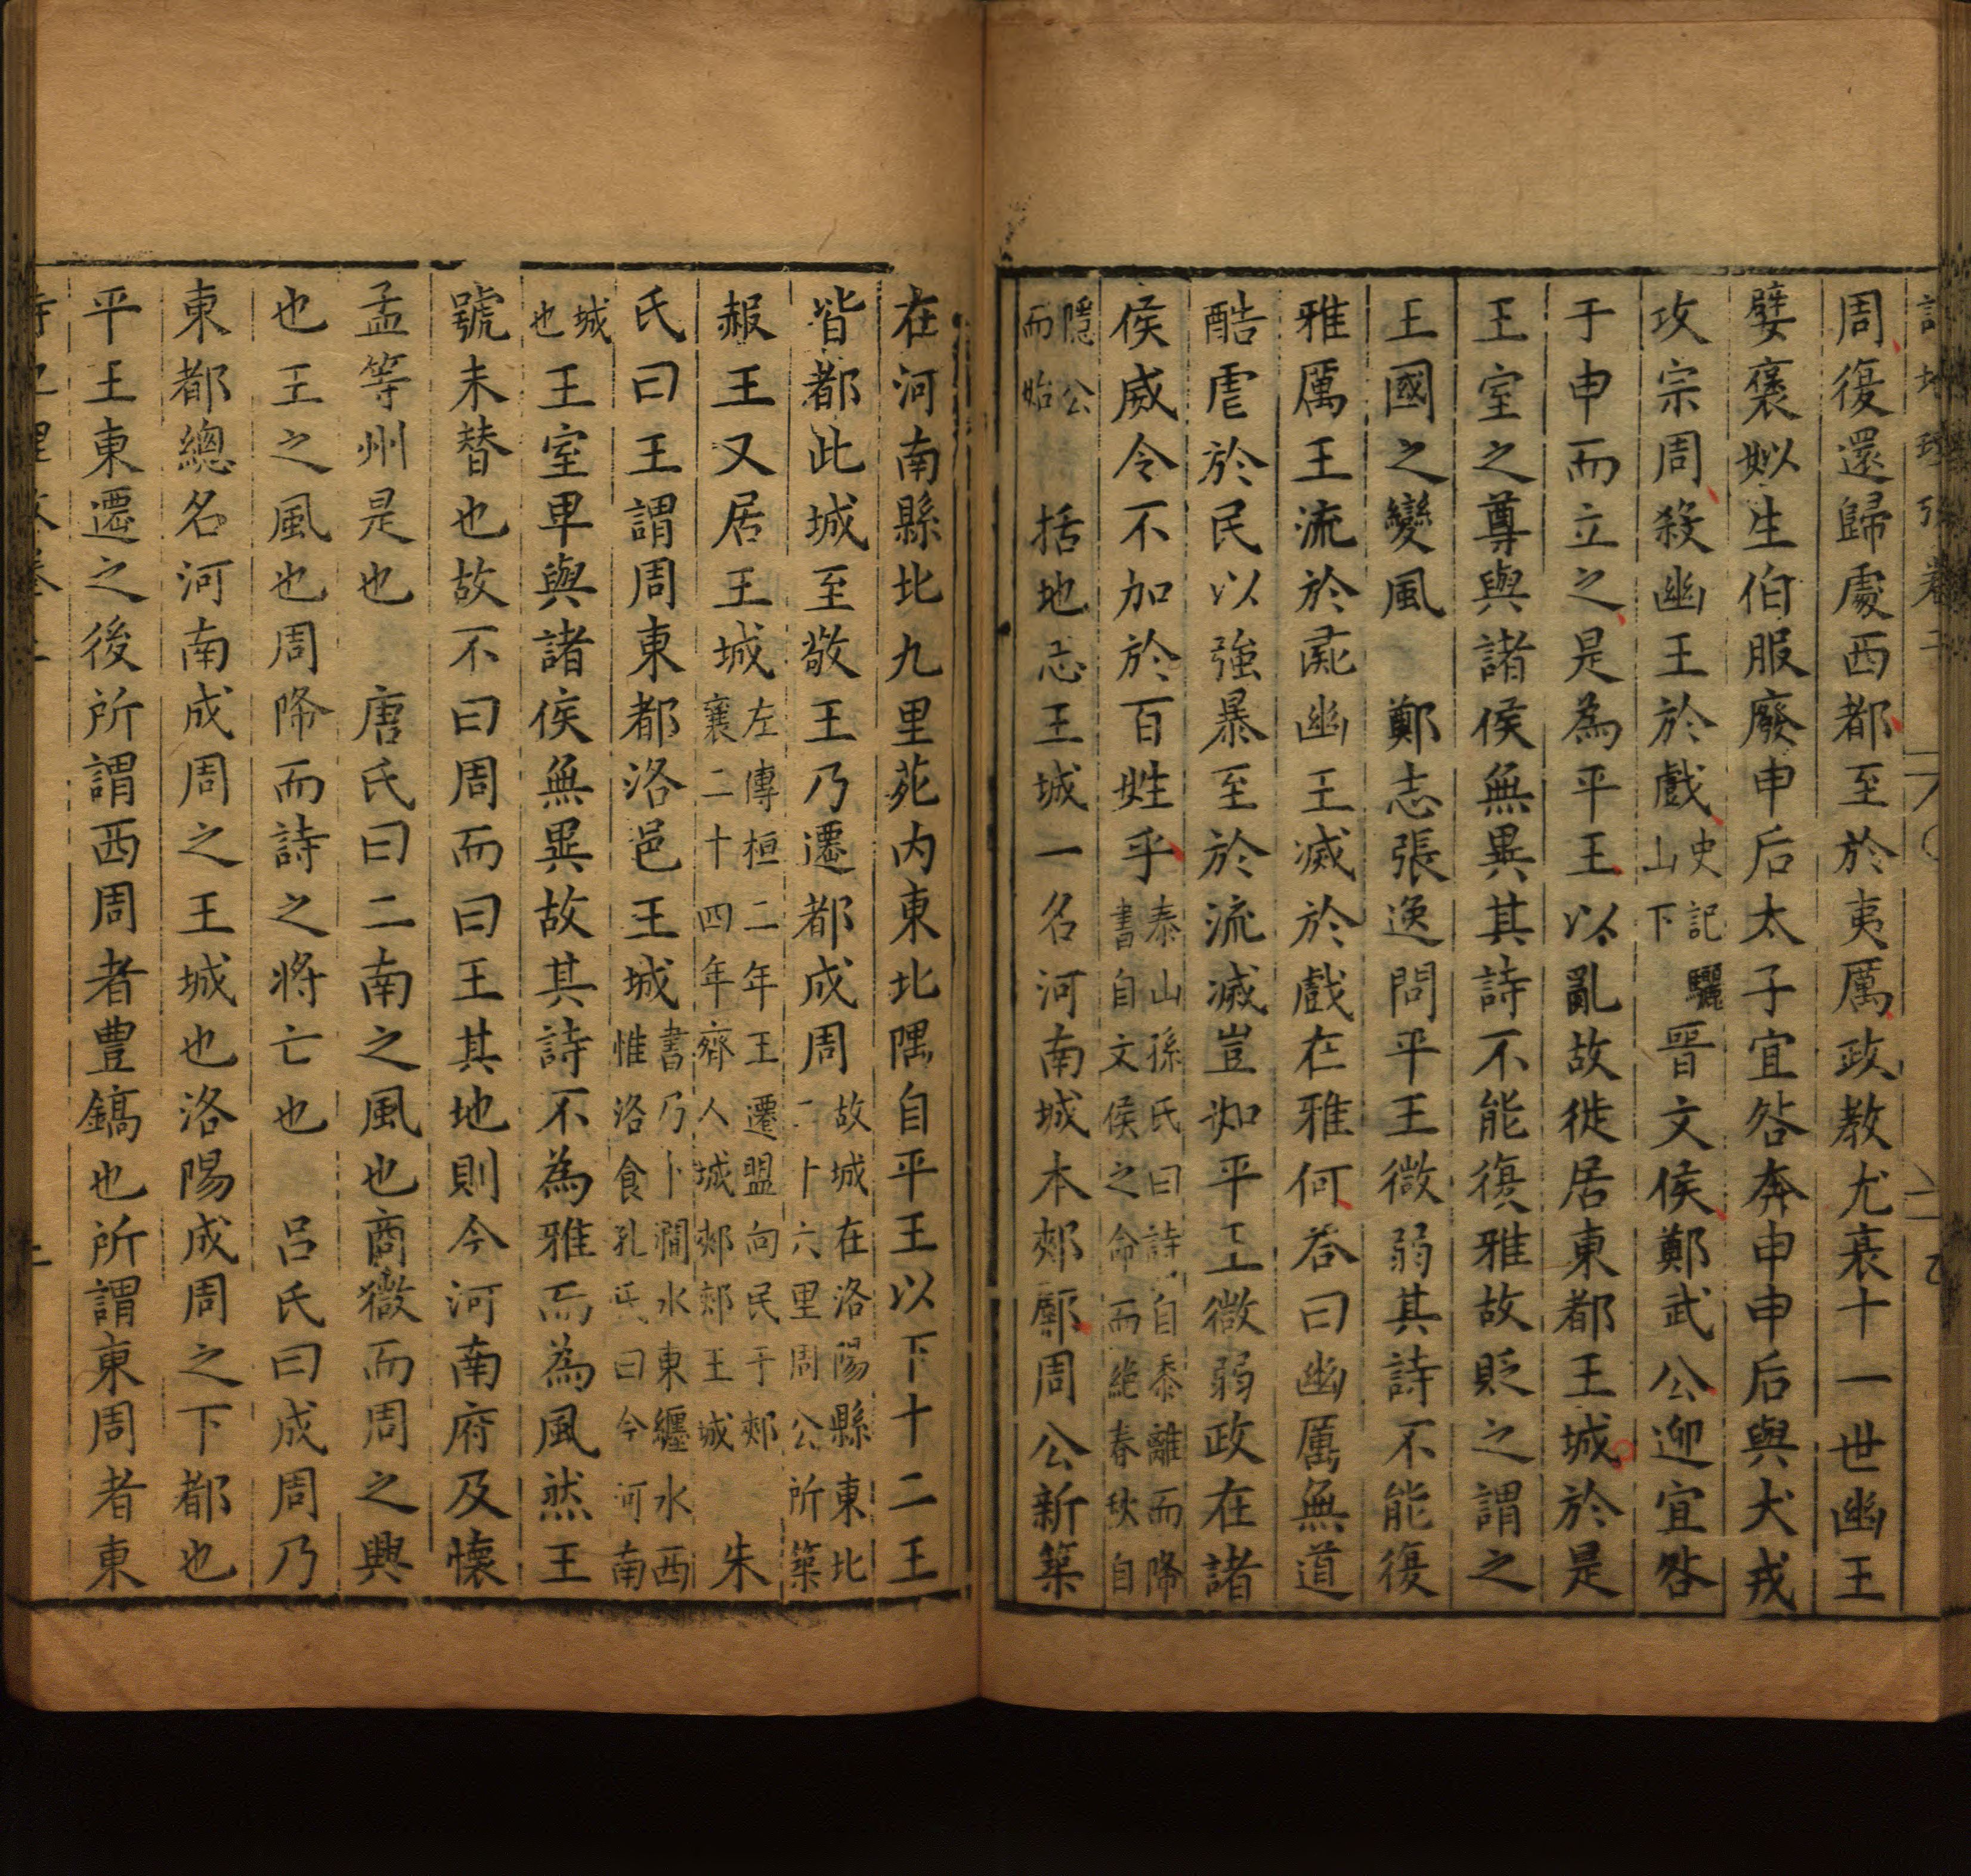 周復還歸處西都至於夷厲政教尤衰十一世幽王
嬖襃姒生伯服廢申后太子宜咎奔申申后與犬戎
攻宗周殺幽王於戲史記驪山下晉文侯鄭武公迎宜咎
于申而立之是為平王以亂故徙居東都王城於是
王室之尊與諸侯無異其詩不能復雅故貶之謂之
王國之變風　鄭志張逸問平王微弱其詩不能復
雅厲王流於彘幽王滅於戲在雅何荅曰幽厲無道
酷虐於民以強暴至於流滅豈如平王微弱政在諸
侯威令不加於百姓乎泰山孫氏曰詩自黍離而降書自文侯之命而絶春秋自
隱公而始　括地志王城一名河南城本郟鄏周公新築
在河南縣北九里苑内東北隅自平王以下十二王
皆都此城至敬王乃遷都成周故城在洛陽縣東北二十六里周公所築
赧王又居王城左傳桓二年王遷盟向民于郟襄二十四年齊人城郟郟王城　朱
氏曰王謂周東都洛邑王城書乃卜澗水東纏水西惟洛食孔氏曰今河南
城也王室卑與諸侯無異故其詩不為雅而為風然王
號未替也故不曰周而曰王其地則今河南府及懷
孟等州是也　唐氏曰二南之風也商微而周之興
也王之風也周降而詩之將亡也　呂氏曰成周乃
東都總名河南成周之王城也洛陽成周之下都也
平王東遷之後所謂西周者豊鎬也所謂東周者東